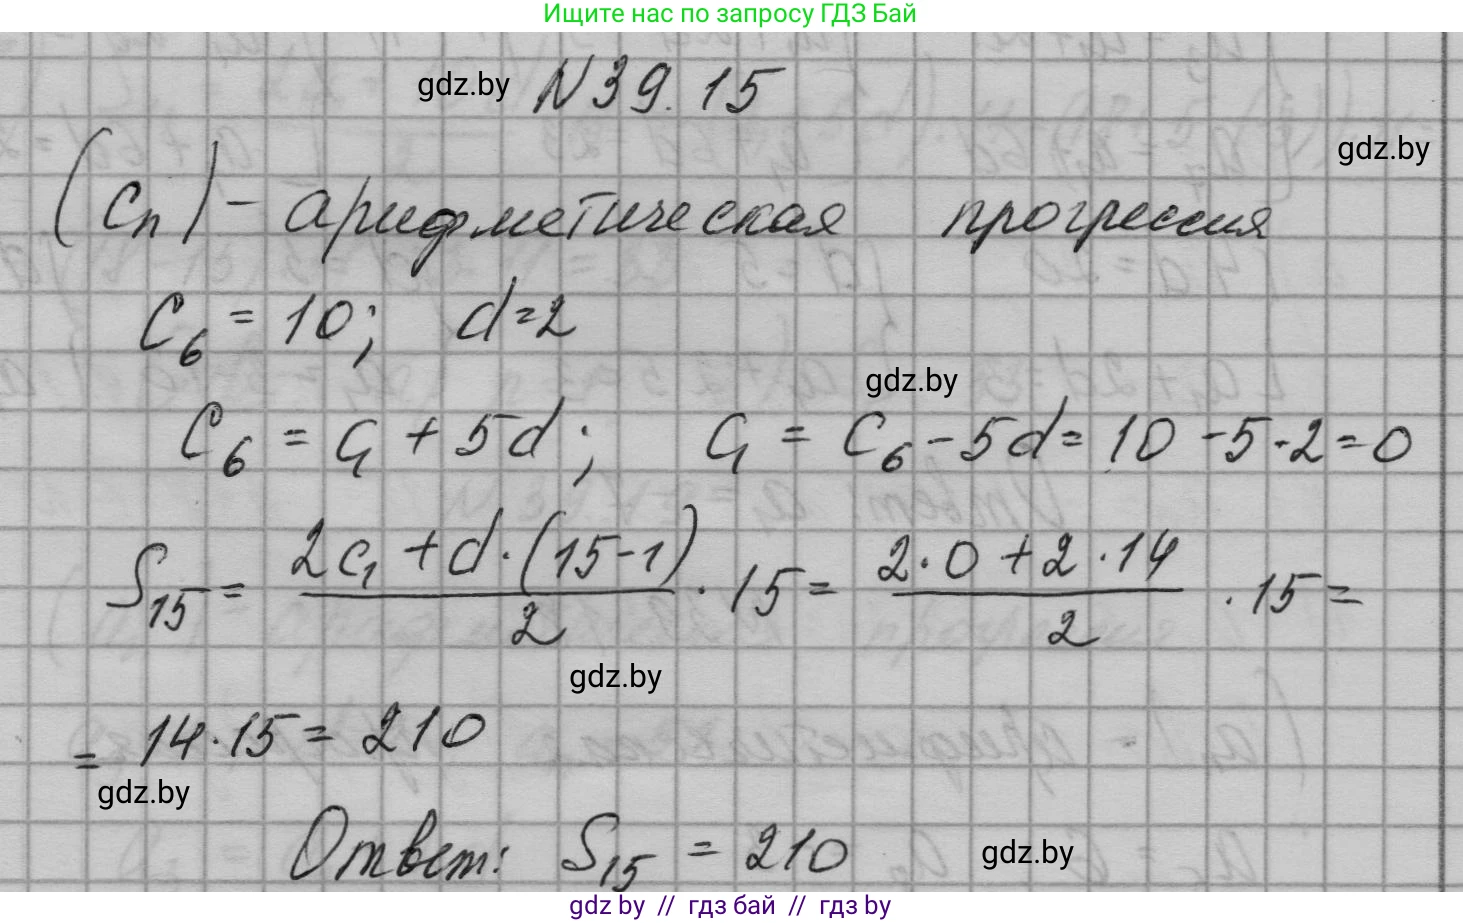 Ищите нас по запросу ГДЗ Бай
gdz.by N39.15
gdz.by
(Cn) - арифметическая прогрессия
C6 = 10; d=2
gdz.by
C6 = C1 + 5d; C1 = C6 - 5d = 10 - 5·2 = 0
S15 = (2C1 + d·(15-1))/2 · 15 = (2·0 + 2·14)/2 · 15 =
gdz.by
= 14·15 = 210
gdz.by
Ответ: S15 = 210 gdz.by
gdz by // гдз бай // гдз by